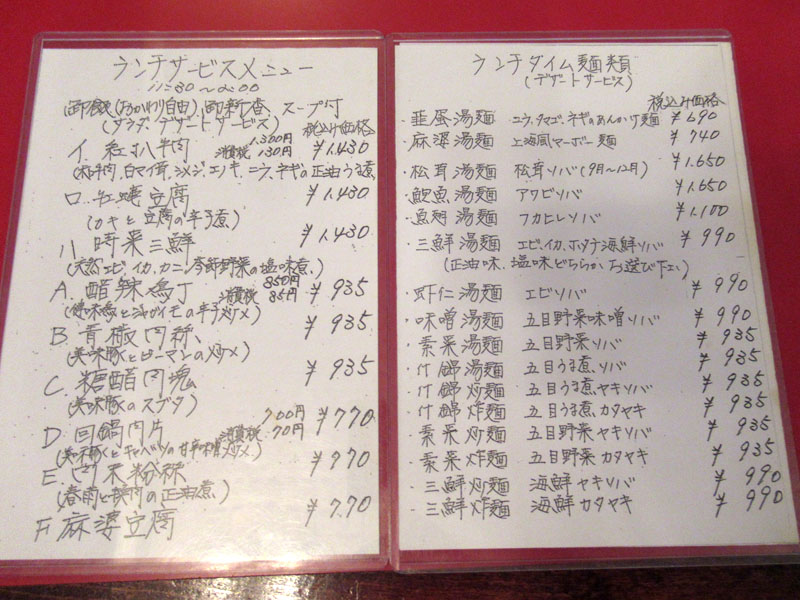 ランチサービスメニュー
11:30〜2:00
御飯(おかわり自由)、御新香、スープ付
(サラダ、デザートサービス)
税込み価格
1.300円
イ. 紅扒牛肉 消費税 130円 ¥1.430
(和牛肉、白マイ茸、シメジ、エノキ、ニラ、ネギの正油うま煮)
ロ. 豆腐 ¥1.430
(カキと豆腐の辛子煮)
ハ 時菜三鮮 ¥1.430
(天然エビ、イカ、カニ、季節野菜の塩味煮)
850円
A. 醋辣鶏丁 消費税 85円 ¥935
(鶏とジャガイモの辛子炒メ)
B. 青椒肉絲 ¥935
(美味豚とピーマンの炒メ)
C. 糖醋肉塊 ¥935
(美味豚のスブタ)
700円
D 回鍋肉片 消費税 70円 ¥770
(美味豚とキャベツの甘辛味噌炒メ)
E. ¥770
(春雨との正油煮)
F 麻婆豆腐 ¥7.70
ランチタイム麺類
(デザートサービス)
税込み価格
・韮蛋湯麺 ニラ、タマゴ、ネギのあんかけ麺 ¥690
・麻婆湯麺 上海風マーボー麺 ¥740
・松茸湯麺 松茸ソバ(9月〜12月) ¥1.650
・鮑魚湯麺 アワビソバ ¥1.650
・魚翅湯麺 フカヒレソバ ¥1.100
・三鮮湯麺 エビ、イカ、ホタテ海鮮ソバ ¥990
(正油味、塩味どちらかお選び下さい)
・虾仁湯麺 エビソバ ¥990
・味噌湯麺 五目野菜味噌ソバ ¥990
・素菜湯麺 五目野菜ソバ ¥935
・什錦湯麺 五目うま煮ソバ ¥935
・什錦炒麺 五目うま煮ヤキソバ ¥935
・什錦炸麺 五目うま煮カタヤキ ¥935
・素菜炒麺 五目野菜ヤキソバ ¥935
・素菜炸麺 五目野菜カタヤキ ¥935
・三鮮炒麺 海鮮ヤキソバ ¥990
・三鮮炸麺 海鮮カタヤキ ¥990